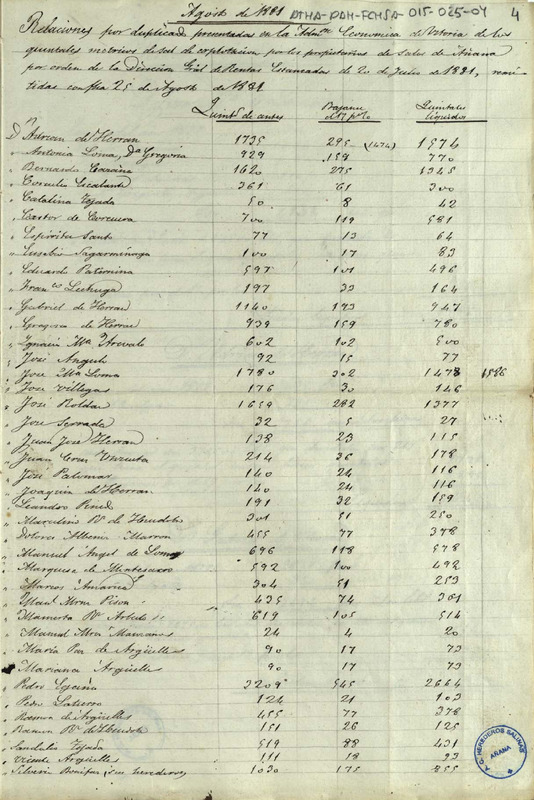 Agosto de 1881 ATHA-DAH-FCHSA-015-025-04 4
Relaciones por duplicado presentadas en la Admon Economica de Vitoria de los
quintales metricos de sal de esplotacion por los propietarios de Salas de Añana
por orden de la Direccion Gral de Rentas Estancadas de 20 de Julio de 1881, remi-
tidas con fha 25 de Agosto de 1881.
Quints de antes Bajan Quintales líquidos
Dn Aurean de Herran 1735 295 (1474) 1574
" Antonia Loma, Da Gregoria 929 159 770
" Bernardo 1620 275 1345
" Cornelia Escalante 361 61 300
" Catalina Tejada 50 8 42
" Castor de Corcuera 700 119 581
" Espiritu Santo 77 13 64
" Eusebio Sagarminaga 100 17 83
" Eduardo Paternina 597 101 496
" Franco Lechuga 197 33 164
" Gabriel de Herran 1140 193 947
" Gregoria de Herran 939 159 780
" Ignacia Ma Arevalo 602 102 500
" José Angulo 92 15 77
" Jose Ma Loma 1780 302 1478 1586
" Jose Villegas 176 30 146
" José Roldan 1659 282 1377
" Jose Serrada 32 5 27
" Juan Jose Herran 138 23 115
" Juan Cruz 214 36 178
" José Palomar 140 24 116
" Joaquin de Herran 140 24 116
" Leandro 191 32 159
" Marcelino 301 51 250
" Dolores 455 77 378
" Manuel Angel de Loma 696 118 578
" Marquesa de Montesacro 592 100 492
" Marcos 304 51 253
" Pison 435 74 361
" Mamerta 619 105 514
" Manuel Mra Manzanos 24 4 20
" Maria Paz de Argüelles 90 17 73
" Mariana Argüelles 90 17 73
" Pedro Egaña 3209 545 2664
" Pedro 124 21 103
" Ramon de Argüelles 455 77 378
" Ramon 151 26 125
" Sandalio Tejada 519 88 431
" Vicente Argüelles 111 18 93
" Silverio Bonifaz, sus herederos 1030 175 855
A.G. HEREDEROS SALINAS
AÑANA